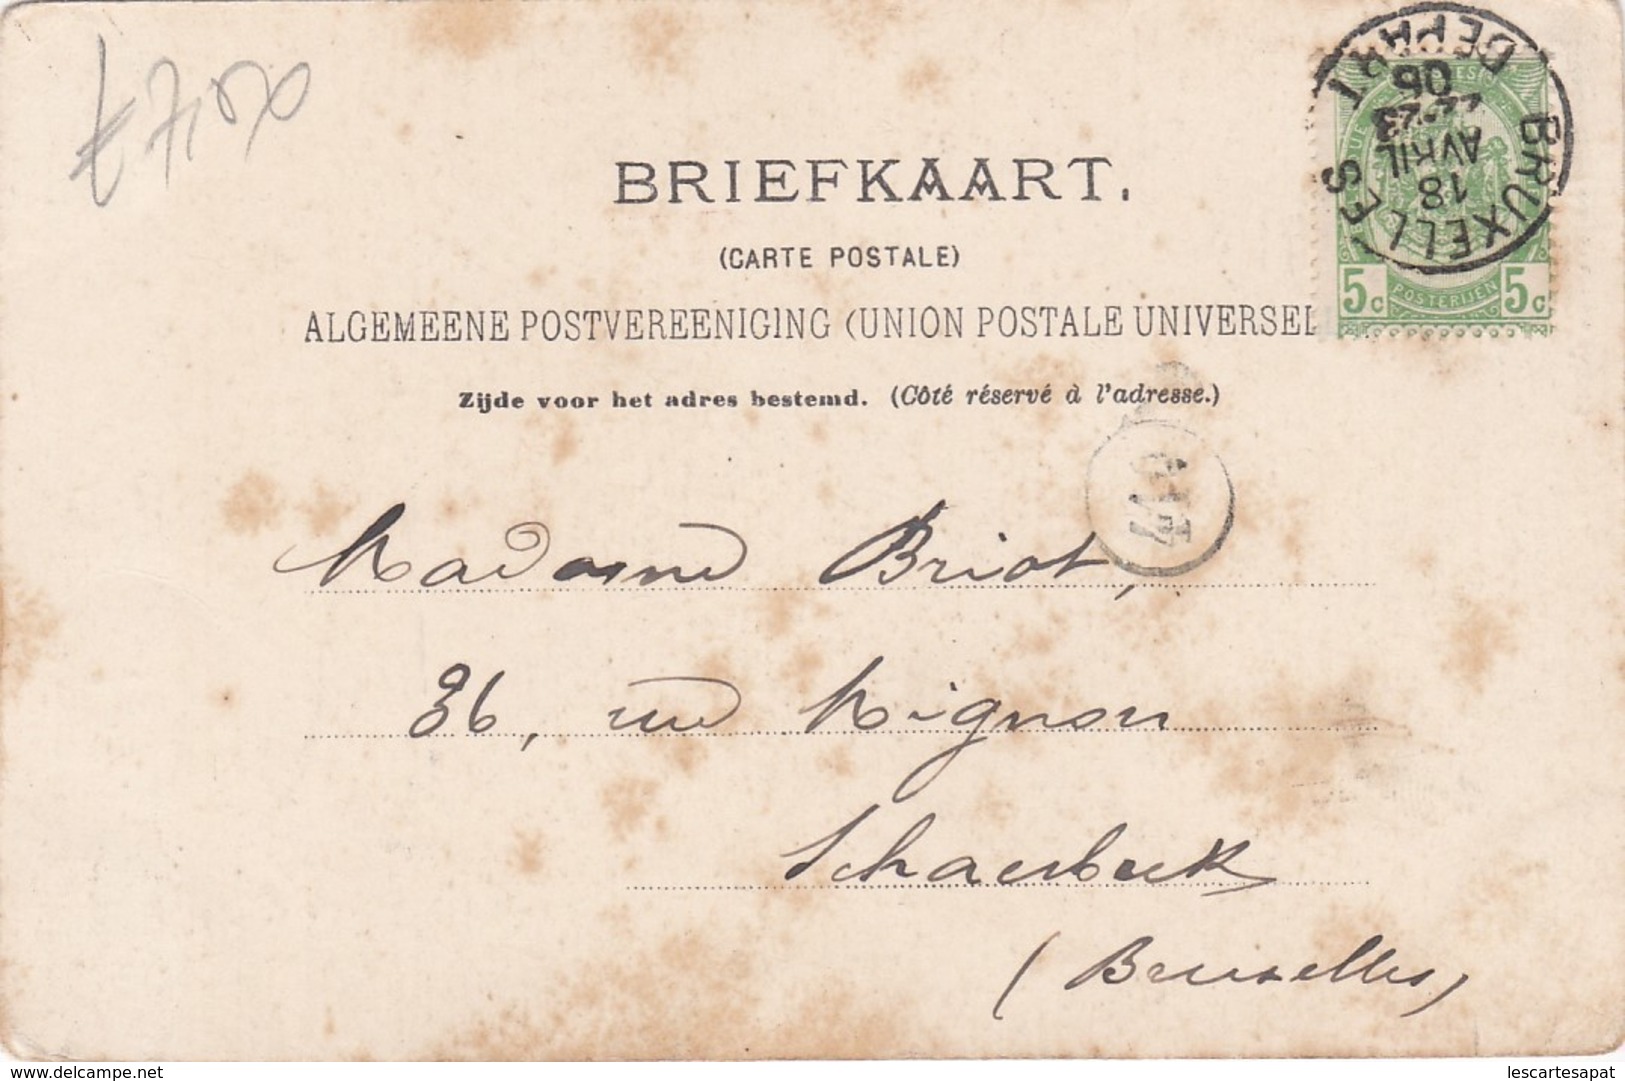 7,50
BRUXELLES
DEPART
18
AVRIL
05
5c POSTERIJEN 5c
BRIEFKAART.
(CARTE POSTALE)
ALGEMEENE POSTVEREENIGING (UNION POSTALE UNIVERSEL
Zijde voor het adres bestemd. (Côté réservé à l'adresse.)
Madame Briot,
36, rue Mignon
Schaerbeek
(Bruxelles)
www.delcampe.net
lescartesapat